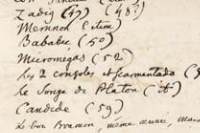 Zadig (47) (48)
Memnon
Bababec (50)
Micromegas (52)
Les 2 Consolés et Scarmentado
Le Songe de Platon
Candide (59)
Le bon Bramin, même œuvre,